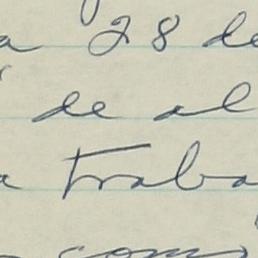 a 28 de
de al
a traba
com